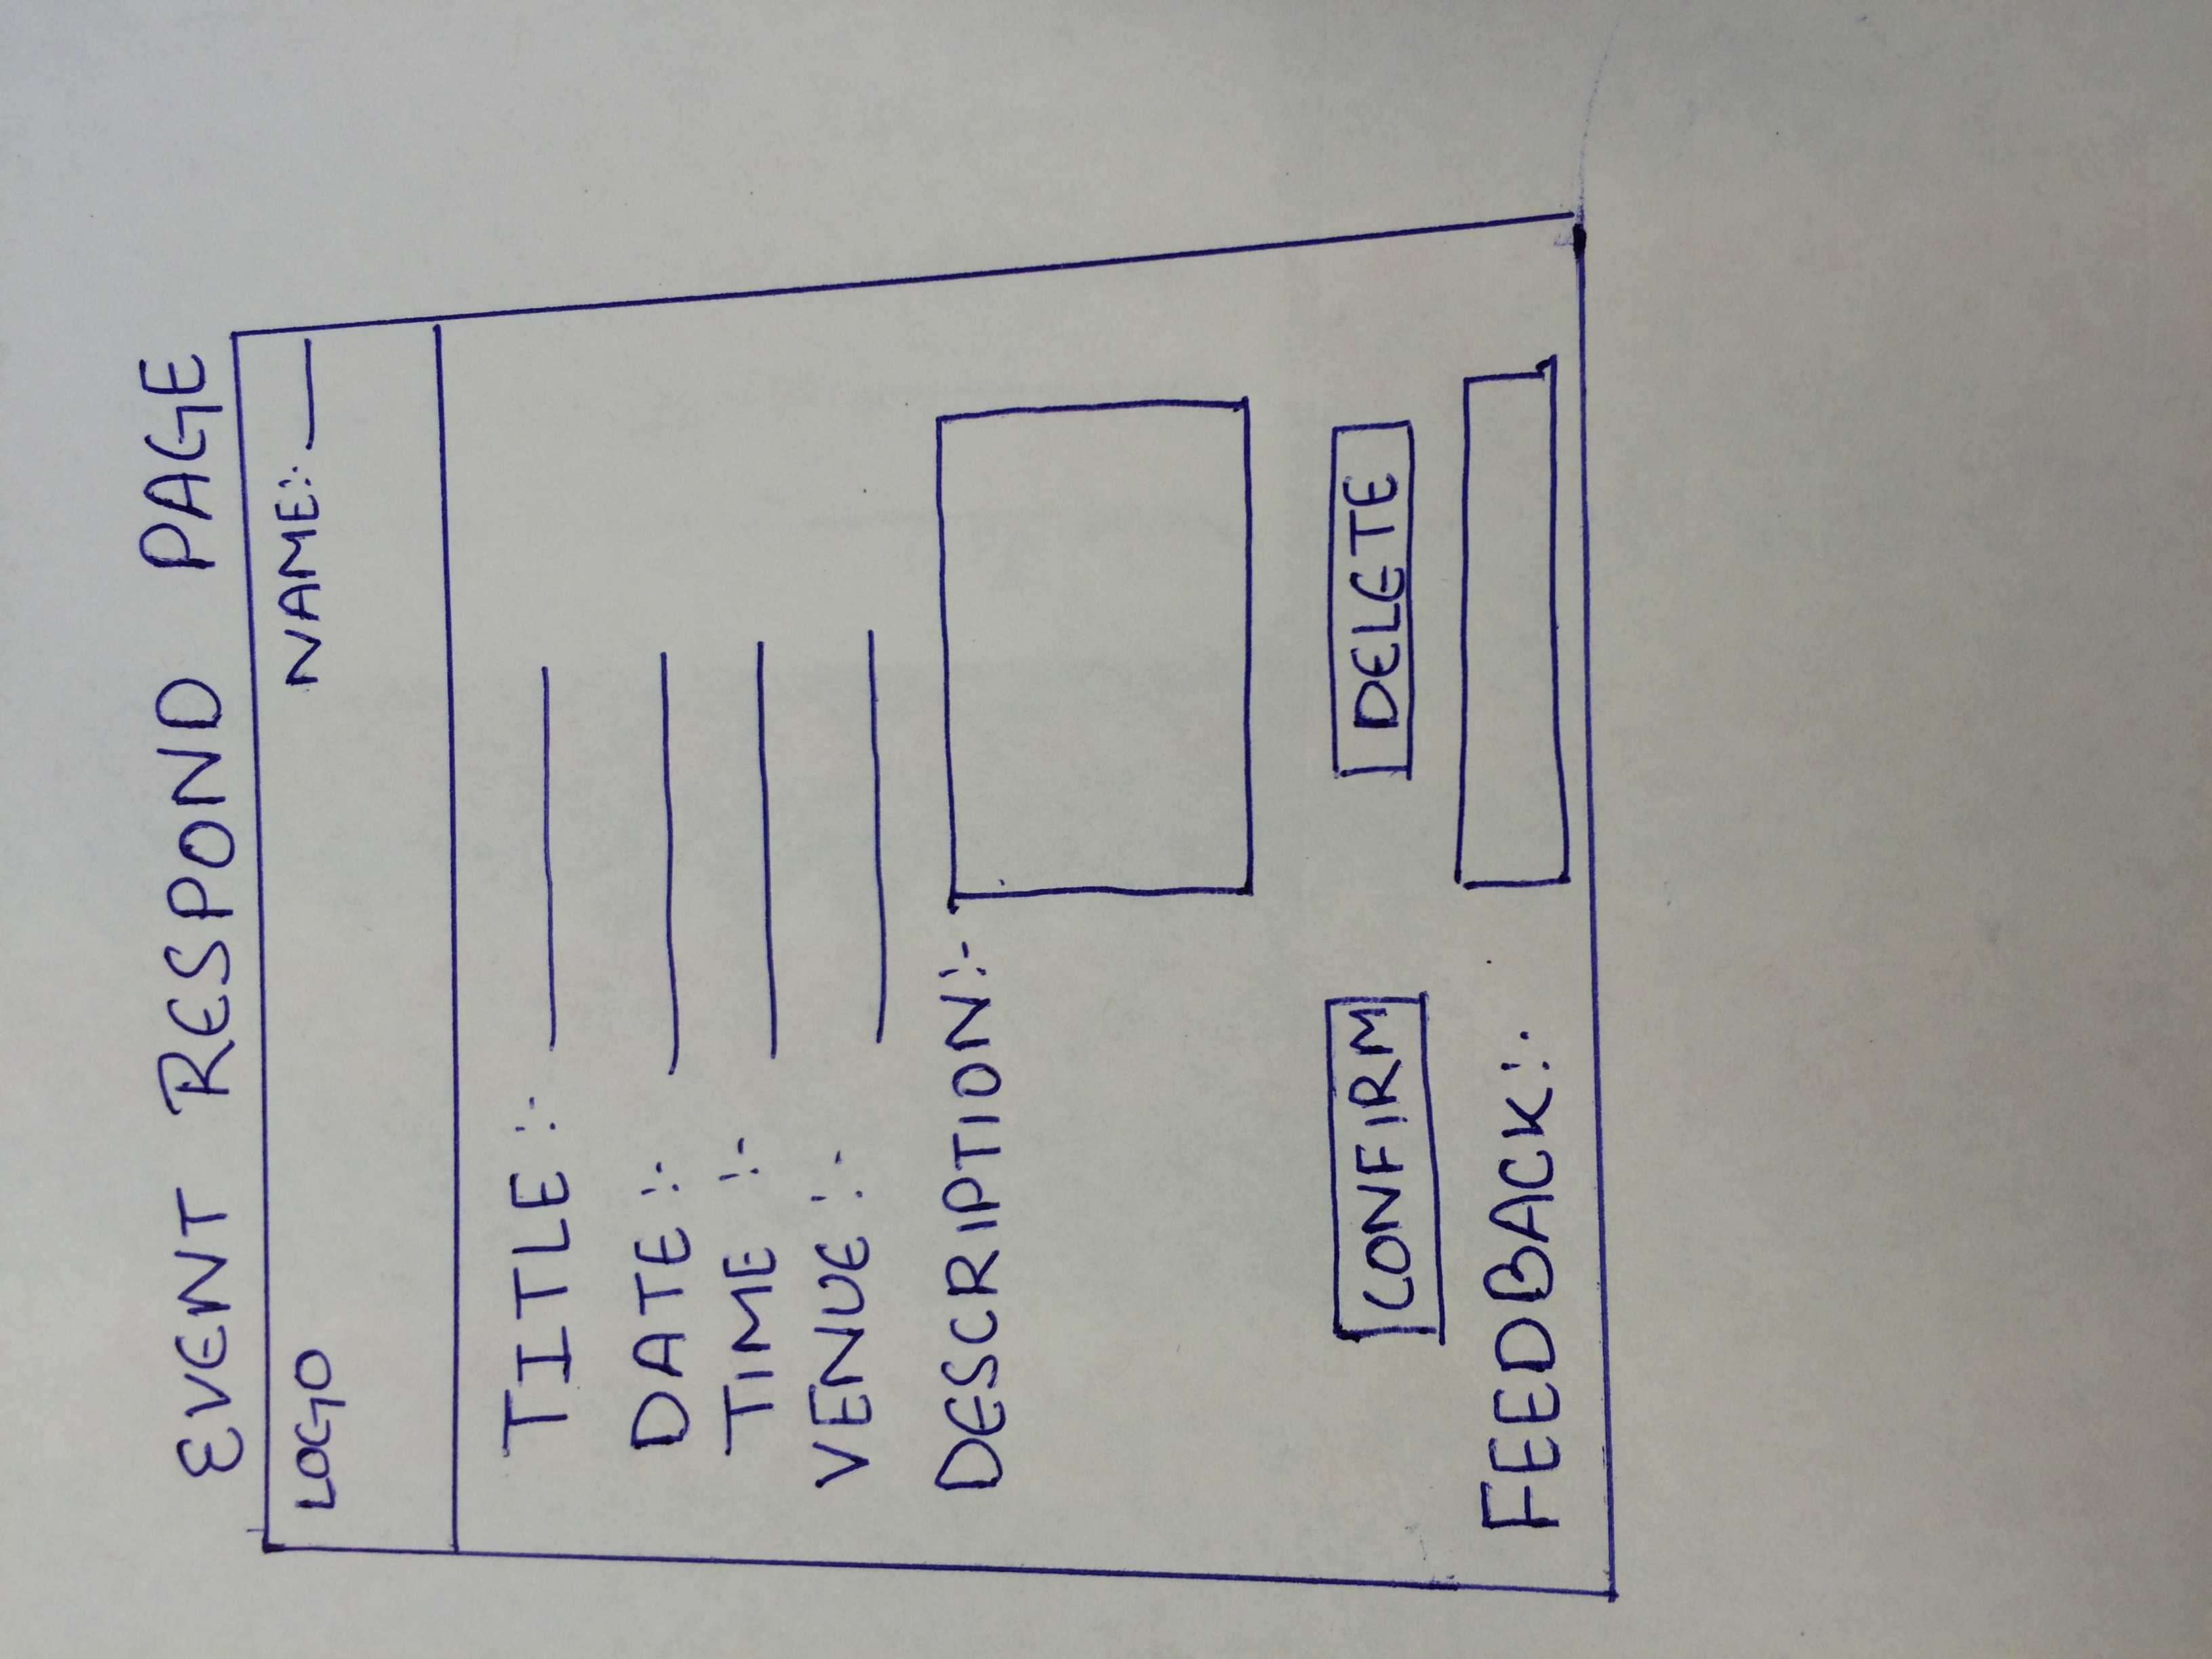 EVENT RESPOND PAGE
LOGO NAME:-
TITLE :-
DATE :-
TIME :-
VENUE :-
DESCRIPTION:-
CONFIRM DELETE
FEEDBACK:-